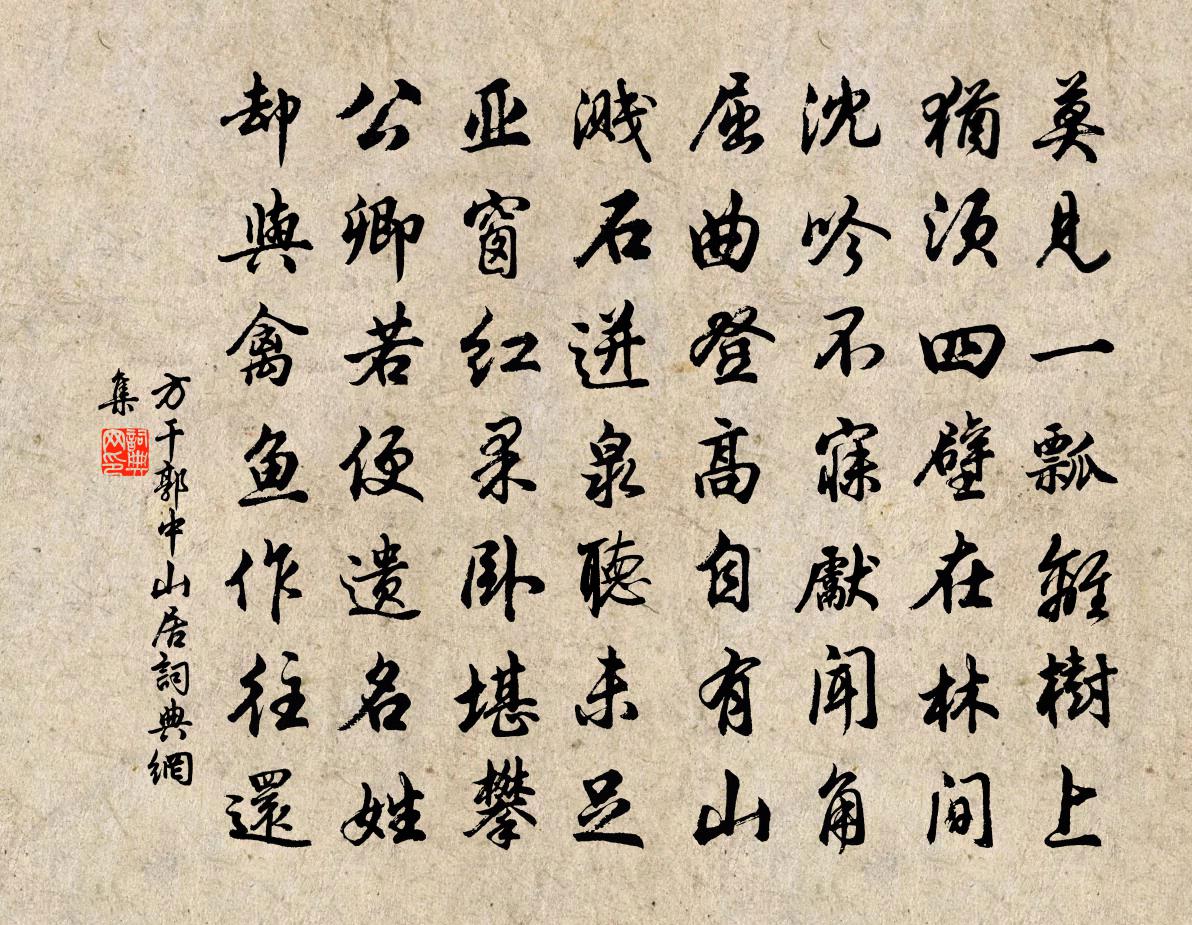 莫見一瓢離樹上
猶須四壁在林間
沈吟不寐獻聞角
屈曲登高自有山
濺石迸泉聽未足
亚窗红果卧堪攀
公卿若便遗名姓
却與禽鱼作往還
方干郭中山居詞典網
集
詞典
网印